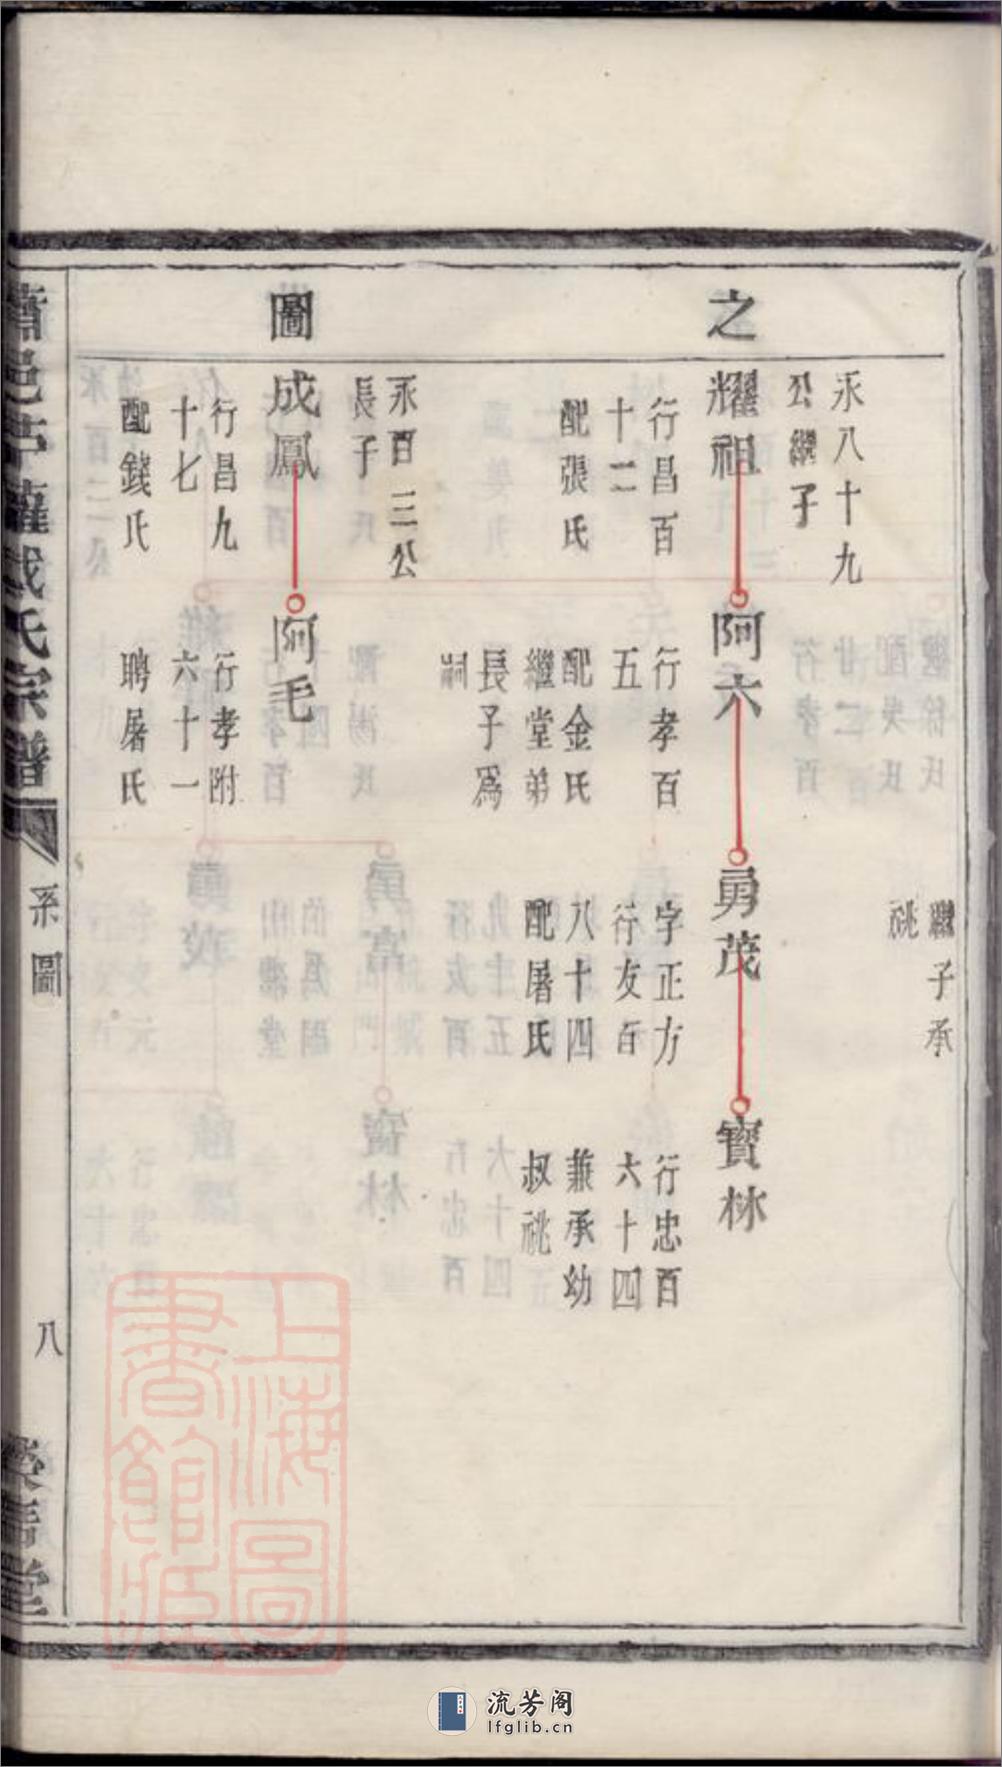 之
圖
繼子承
祧
永八十九
公繼子
耀祖
行昌百
十二
配張氏
阿六
行孝百
五
配金氏
繼堂弟
長子爲
嗣
勇茂
字正方
行友百
八十四
配屠氏
寳林
行忠百
六十四
兼承幼
叔祧
永百三公
長子
成鳳
行昌九
十七
配錢氏
阿毛
行孝附
六十一
聘屠氏
氏宗譜
系圖
八
上海圖
書館藏
流芳阁
lfglib.cn